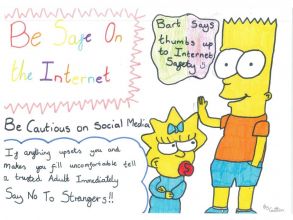 Be Safe On
the Internet
Bart Says
thumbs up
to Internet
Safety
Be Cautious on Social Media
If anything upsets you and
makes you fill uncomfortable tell
a trusted Adult Immediately
Say No To Strangers!!